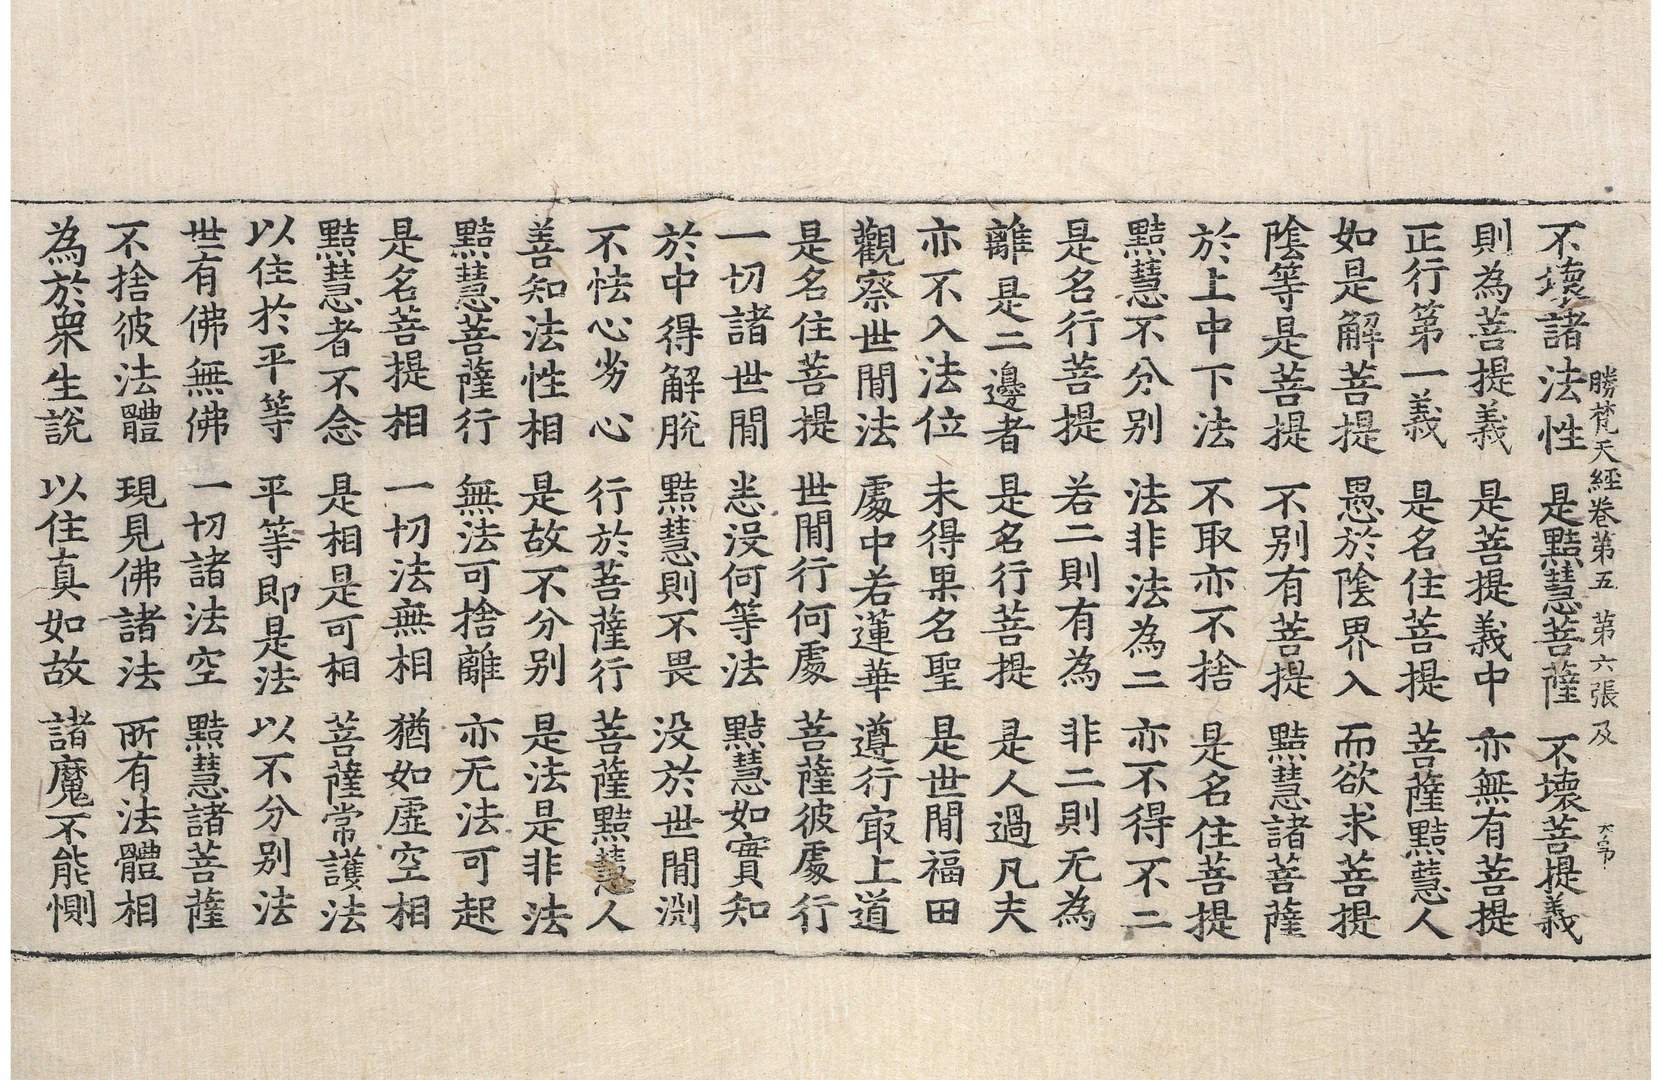 不壞諸法性 是黠慧菩薩 不壞菩提義
勝梵天經卷第五 第六張 及
則為菩提義 是菩提義中 亦無有菩提
正行第一義 是名住菩提 菩薩黠慧人
如是解菩提 愚於陰界入 而欲求菩提
陰等是菩提 不別有菩提 黠慧諸菩薩
於上中下法 不取亦不捨 是名住菩提
黠慧不分別 法非法為二 亦不得不二
是名行菩提 若二則有為 非二則无為
離是二邊者 是名行菩提 是人過凡夫
亦不入法位 未得果名聖 是世間福田
觀察世間法 處中若蓮華 遵行㝡上道
是名住菩提 世間行何處 菩薩彼處行
一切諸世間 恙沒何等法 黠慧如實知
於中得解脫 黠慧則不畏 没於世間渕
不怯心劣心 行於菩薩行 菩薩黠慧人
善知法性相 是故不分別 是法是非法
黠慧菩薩行 無法可捨離 亦无法可起
是名菩提相 一切法無相 猶如虛空相
黠慧者不念 是相是可相 菩薩常護法
以住於平等 平等即是法 以不分別法
世有佛無佛 一切諸法空 黠慧諸菩薩
不捨彼法體 現見佛諸法 所有法體相
為於眾生說 以住真如故 諸魔不能惻